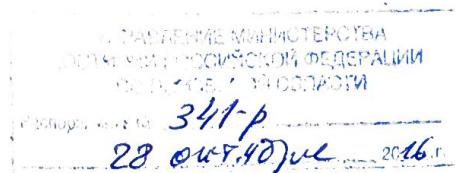 УПРАВЛЕНИЕ МИНИСТЕРСТВА
ЮСТИЦИИ РОССИЙСКОЙ ФЕДЕРАЦИИ
ОБЛАСТИ
341-р
28 октября 2016 г.